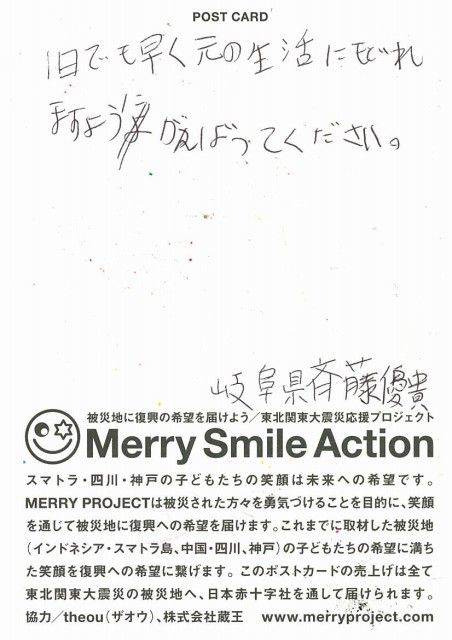 POST CARD
1日でも早く元の生活にもどれ
ますよう がんばってください。
岐阜県斉藤優貴
被災地に復興の希望を届けよう／東北関東大震災応援プロジェクト
Merry Smile Action
スマトラ・四川・神戸の子どもたちの笑顔は未来への希望です。
MERRY PROJECTは被災された方々を勇気づけることを目的に、笑顔
を通じて被災地に復興への希望を届けます。これまでに取材した被災地
（インドネシア・スマトラ島、中国・四川、神戸）の子どもたちの希望に満ち
た笑顔を復興への希望に繋げます。このポストカードの売上げは全て
東北関東大震災の被災地へ、日本赤十字社を通して届けられます。
協力／theou（ザオウ）、株式会社蔵王 www.merryproject.com